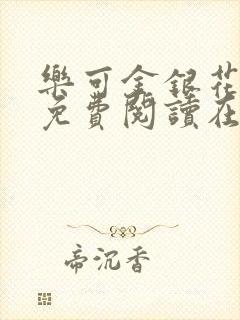 樂可金銀花
免費閱讀在
帝沉香